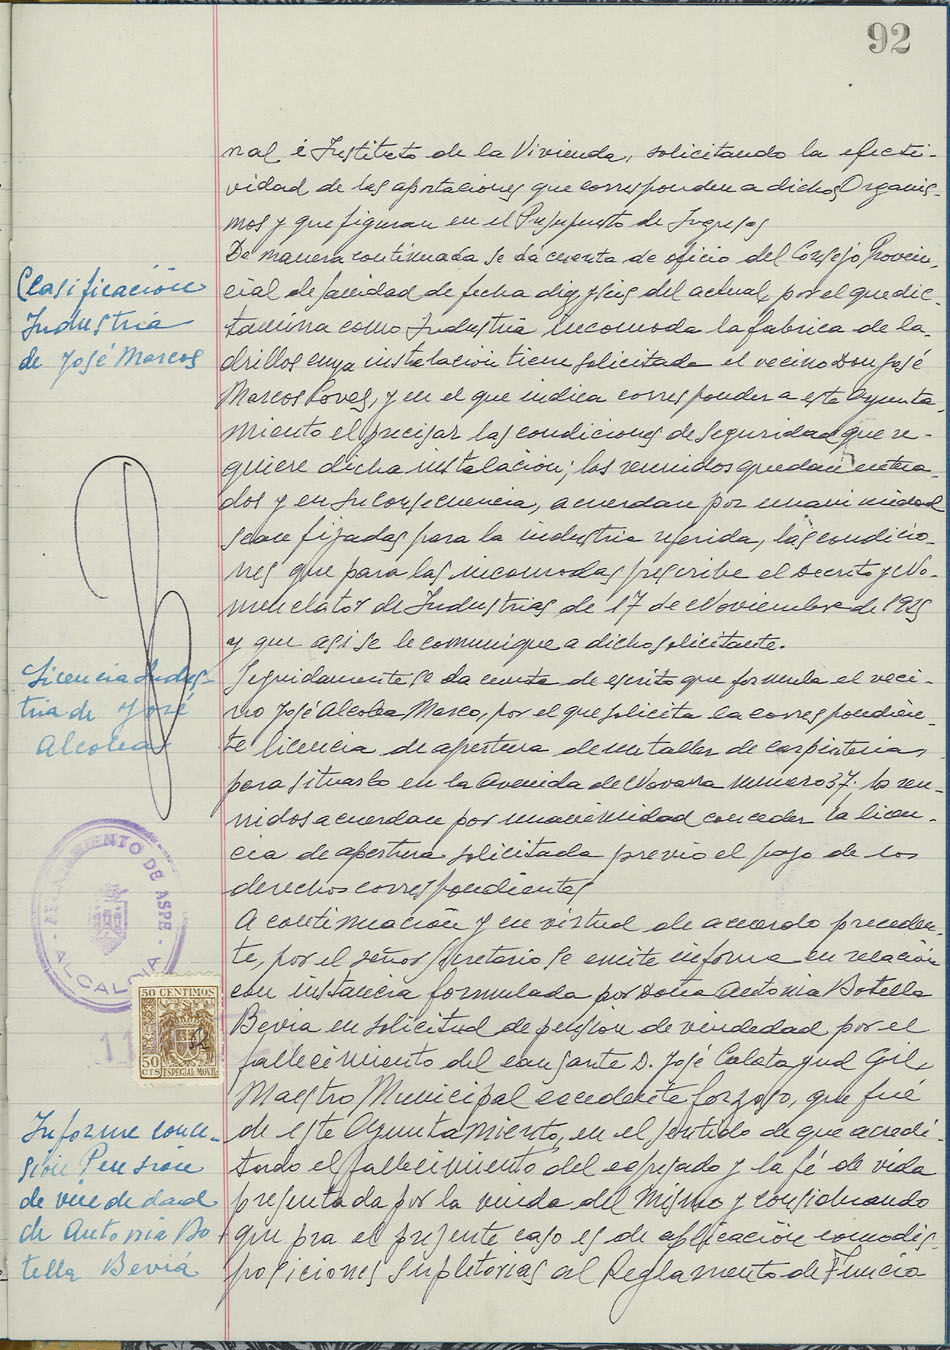 92
nal é Instituto de la Vivienda, solicitando la efecti-
vidad de las aportaciones que corresponden a dichos Organis-
mos y que figuran en el Presupuesto de Ingresos
De manera continuada se da cuenta de oficio del Consejo Provin-
cial de Sanidad de fecha diez y seis del actual, por el que dic-
Clasificación
Industria
de José Marcos
tamina como Industria incomoda la fabrica de la-
drillos cuya instalación tiene solicitada el vecino Don José
Marcos Poves, y en el que indica corresponder a este Ayunta
miento el precisar las condiciones de seguridad que re-
quiere dicha instalación; los reunidos quedan entera-
dos y en su consecuencia, acuerdan por unanimidad
sean fijadas para la industria referida, las condicio-
nes que para las incomodas prescribe el Decreto y No-
menclator de Industrias de 17 de Noviembre de 1925
y que asi se le comunique a dicho solicitante.
Licencia Indus-
tria de José
Alcolea
Seguidamente se da cuenta de escrito que formula el veci-
no José Alcolea Marco, por el que solicita la correspondien-
te licencia de apertura de un taller de carpinteria,
para situarlo en la Avenida de Navarra numero 37. los reu-
nidos acuerdan por unanimidad conceder la licen-
cia de apertura solicitada previo el pago de los
derechos correspondientes
AYUNTAMIENTO DE ASPE
ALCALDIA
50 CENTIMOS
50
CTS ESPECIAL MOVIL
11
A continuación y en virtud de acuerdo preceden-
te, por el señor Secretario se emite informe en relación
con instancia formulada por Doña Antonia Botella
Bevia en solicitud de pension de viudedad por el
fallecimiento del causante D. José Calatayud Gil,
Maestro Municipal excedente forzoso, que fué
de este Ayuntamiento, en el sentido de que acredi-
Informe conce-
sión Pensión
de viudedad
de Antonia Bo-
tella Beviá
tado el fallecimiento del expresado y la fé de vida
presentada por la viuda del mismo y considerando
que pra el presente caso es de aplicación como dis-
posiciones supletorias al Reglamento de Funcio